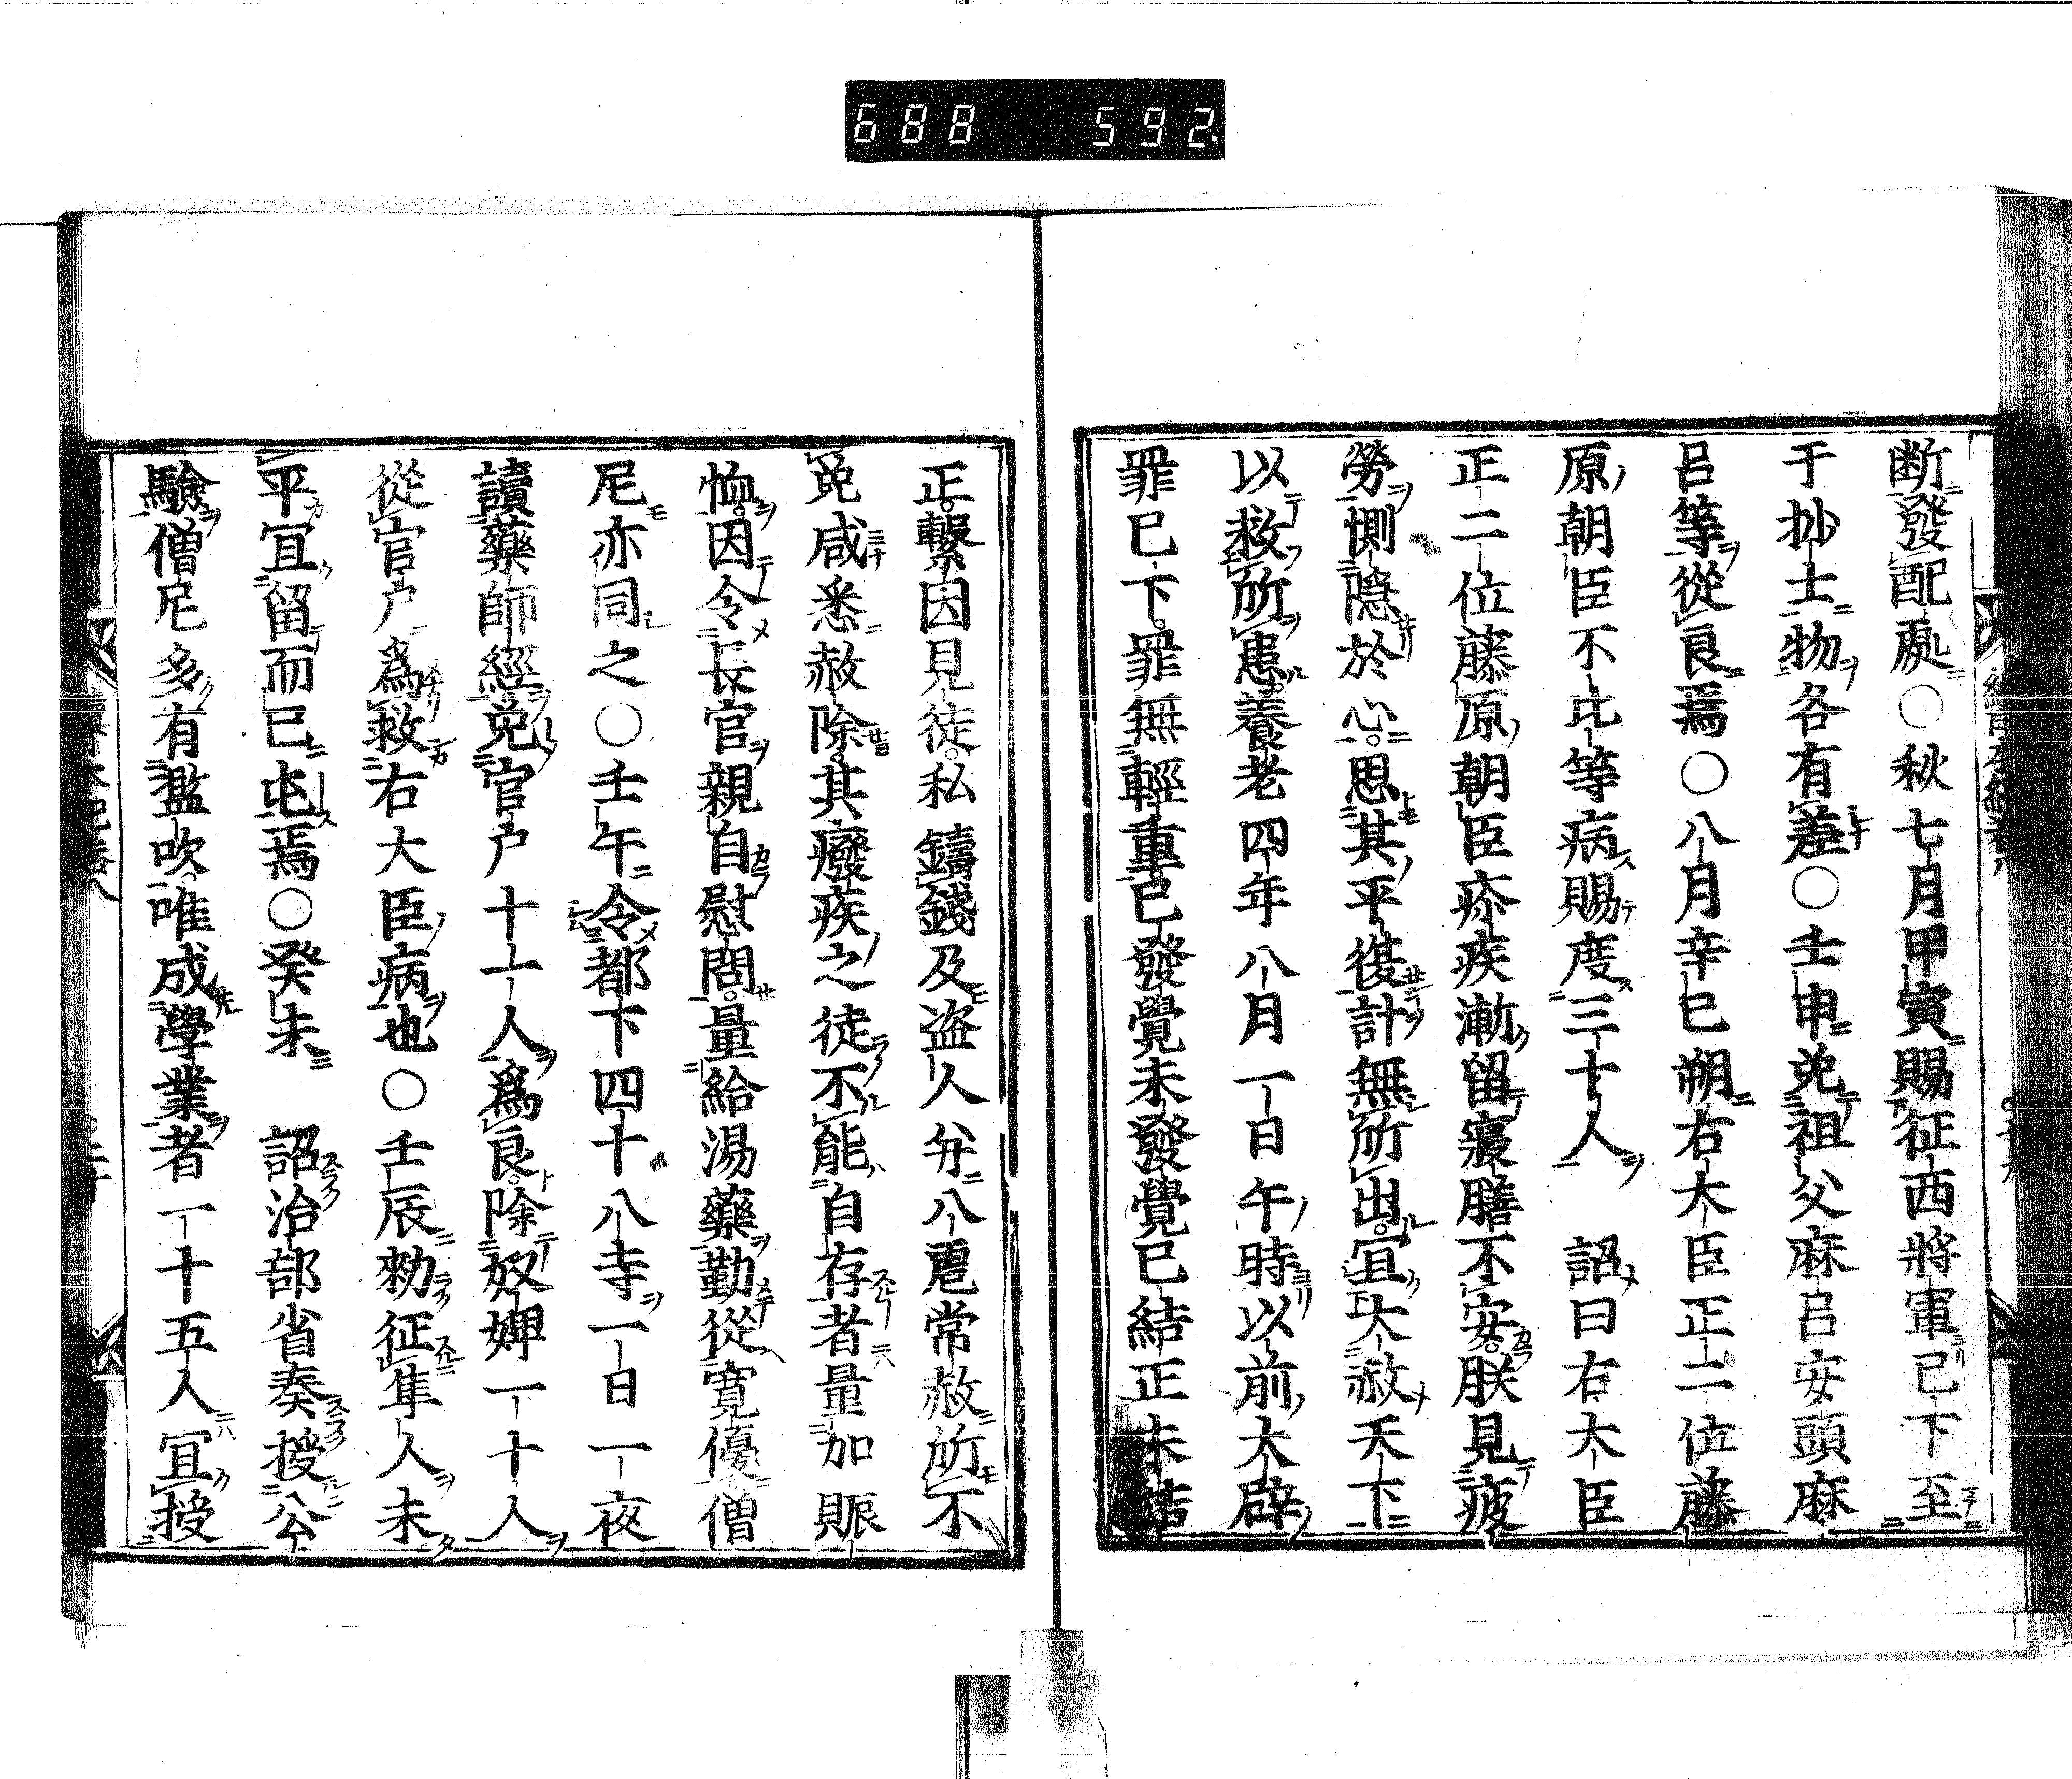 688 592
断發配處○秋七月甲寅賜征西將軍已下至
于抄士物各有差○壬申免祖父麻呂安頭麻
呂等從良焉○八月辛巳朔右大臣正二位藤
原朝臣不比等病賜度三十人 詔曰右大臣
正二位藤原朝臣疹疾漸留寢膳不安朕見疲
勞惻隱於心思其平復計無所出宜大赦天下
以救所患養老四年八月一日午時以前大辟
罪已下罪無輕重已發覺未發覺已結正未結
正繫因見徒私鑄錢及盗人并八虐常赦所不
免咸悉赦除其癈疾之徒不能自存者量加賑
恤因令長官親自慰問量給湯藥勤從寛優僧
尼亦同之○壬午令都下四十八寺一日一夜
讀藥師經免官户十一人爲良除奴婢一十人
從官户爲救右大臣病也○壬辰勑征隼人未
平宜留而已屯焉○癸未 詔治部省奏授公
驗僧尼多有濫吹唯成學業者一十五人宜授